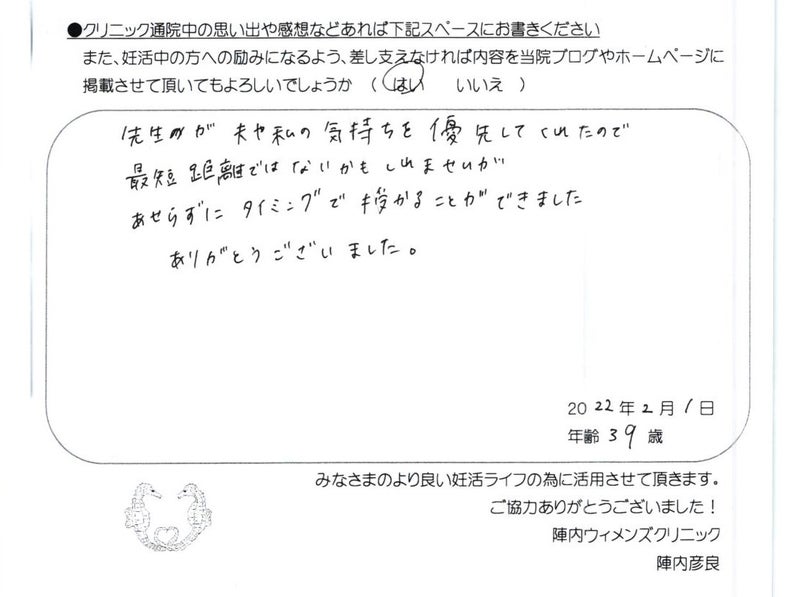 ●クリニック通院中の思い出や感想などあれば下記スペースにお書きください
また、妊活中の方への励みになるよう、差し支えなければ内容を当院ブログやホームページに
掲載させて頂いてもよろしいでしょうか （ はい いいえ ）
先生が 夫や私の 気持ちを 優先してくれたので
最短距離ではないかもしれませんが
あせらずに タイミングで 授かることができました
ありがとうございました。
2022年2月1日
年齢39歳
みなさまのより良い妊活ライフの為に活用させて頂きます。
ご協力ありがとうございました！
陣内ウィメンズクリニック
陣内彦良